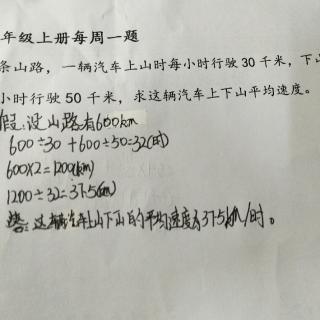 年级上册每周一题
条山路，一辆汽车上山时每小时行驶30千米，下山
小时行驶50千米，求这辆汽车上下山平均速度。
假设山路有600km
600÷30+600÷50=32(时)
600×2=1200(km)
1200÷32=37.5(km)
答：这辆汽车上山下山的平均速度为37.5km/时。